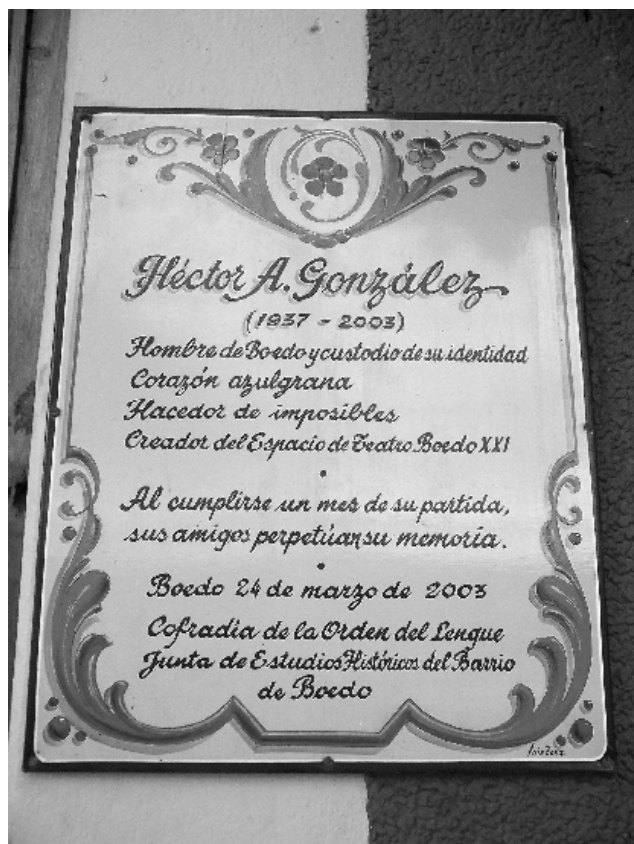 Héctor A. González
(1937 - 2003)
Hombre de Boedo y custodio de su identidad
Corazón azulgrana
Hacedor de imposibles
Creador del Espacio de Teatro Boedo XXI
Al cumplirse un mes de su partida,
sus amigos perpetúan su memoria.
Boedo 24 de marzo de 2003
Cofradía de la Orden del Lengue
Junta de Estudios Históricos del Barrio
de Boedo